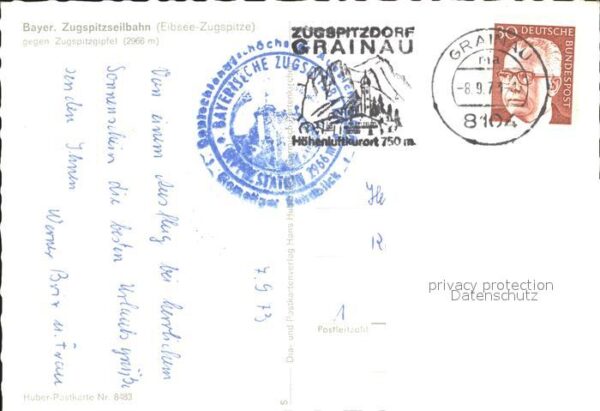 Bayer. Zugspitzseilbahn (Eibsee-Zugspitze)
gegen Zugspitzgipfel (2966 m)
Von einem Ausflug bei herrlichem
Sonnenschein die besten Urlaubsgrüße
von den Ihnen
Werner Brix u. Frau
7.9.73
Huber-Postkarte Nr. 8483
Dia- und Postkartenverlag Hans Huber
BAYERISCHE ZUGSPITZ
GIPFELSTATION 2966 m
ZUGSPITZDORF
GRAINAU
Höhenluftkurort 750 m.
GRAINAU
-8.9.73
8104
30
DEUTSCHE
BUNDESPOST
He
R.
1
Postleitzahl
privacy protection
Datenschutz